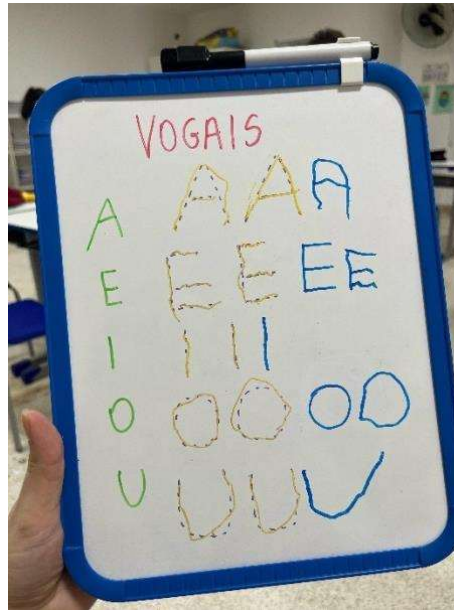 VOGAIS
A A A A
E E E E E
I I I I
O O O O O
U U U U